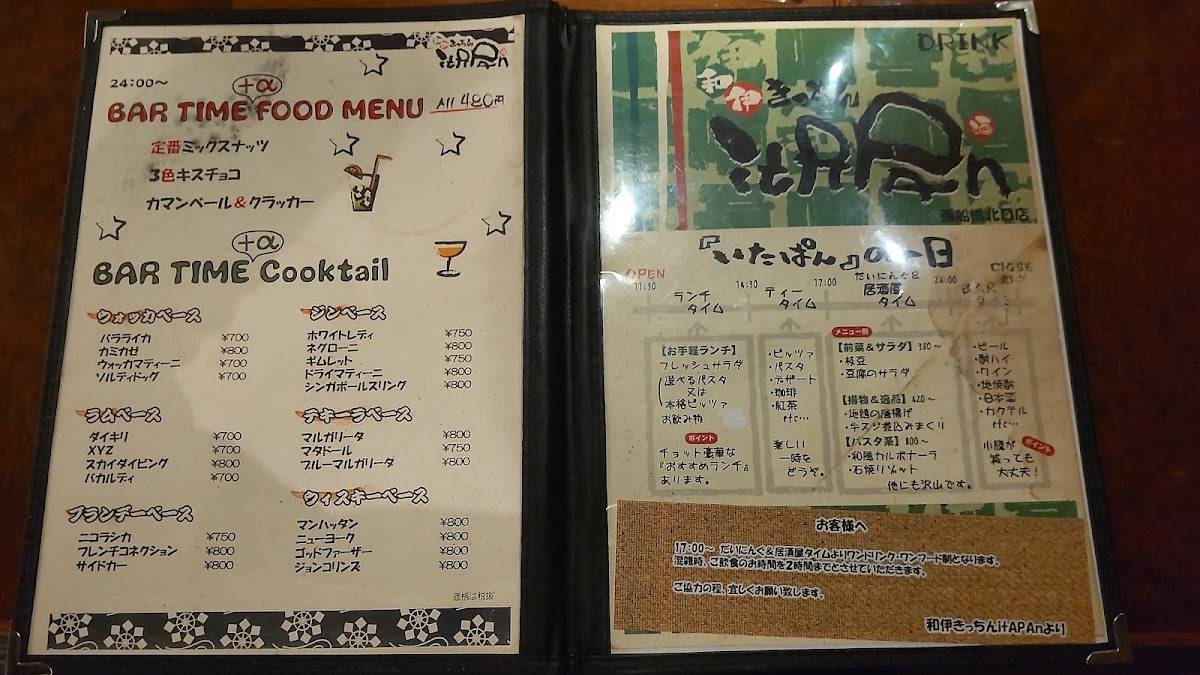 和伊きっちん
itAPAn
24:00～
+α
BAR TIME FOOD MENU All 480円
定番ミックスナッツ
3色キスチョコ
カマンベール&クラッカー
+α
BAR TIME Cooktail
ウォッカベース
バラライカ ¥700
カミカゼ ¥800
ウォッカマティーニ ¥700
ソルティドッグ ¥700
ジンベース
ホワイトレディ ¥750
ネグローニ ¥800
ギムレット ¥750
ドライマティーニ ¥800
シンガポールスリング ¥800
ラムベース
ダイキリ ¥700
XYZ ¥700
スカイダイビング ¥800
バカルディ ¥700
テキーラベース
マルガリータ ¥800
マタドール ¥750
ブルーマルガリータ ¥800
ブランデーベース
ニコラシカ ¥750
フレンチコネクション ¥800
サイドカー ¥800
ウィスキーベース
マンハッタン ¥800
ニューヨーク ¥800
ゴッドファーザー ¥800
ジョンコリンズ ¥800
価格は税抜
DRINK
和伊きっちん
itAPAn
西船橋北口店
『いたぱん』の一日
OPEN
11:30
ランチ
タイム
14:30
ティー
タイム
17:00
だいにんぐ&
居酒屋
タイム
24:00
タイム
CLOSE
【お手軽ランチ】
フレッシュサラダ
選べるパスタ
又は
本格ピッツァ
お飲み物
ポイント
チョット豪華な
『おすすめランチ』
あります。
・ピッツァ
・パスタ
・デザート
・珈琲
・紅茶
etc…
楽しい
一時を
どうぞ。
メニュー例
【前菜&サラダ】380～
・枝豆
・豆腐のサラダ
【揚物&逸品】420～
・地鶏の唐揚げ
・牛スジ煮込みまぐり
【パスタ系】800～
・和風カルボナーラ
・石焼リゾット
他にも沢山です。
・ビール
・酎ハイ
・ワイン
・地焼酎
・日本酒
・カクテル
etc…
ポイント
小腹が
減っても
大丈夫！
お客様へ
17:00～ だいにんぐ&居酒屋タイムよりワンドリンク・ワンフード制となります。
混雑時、ご飲食のお時間を2時間までとさせていただきます。
ご協力の程、宜しくお願い致します。
和伊きっちんitAPAnより